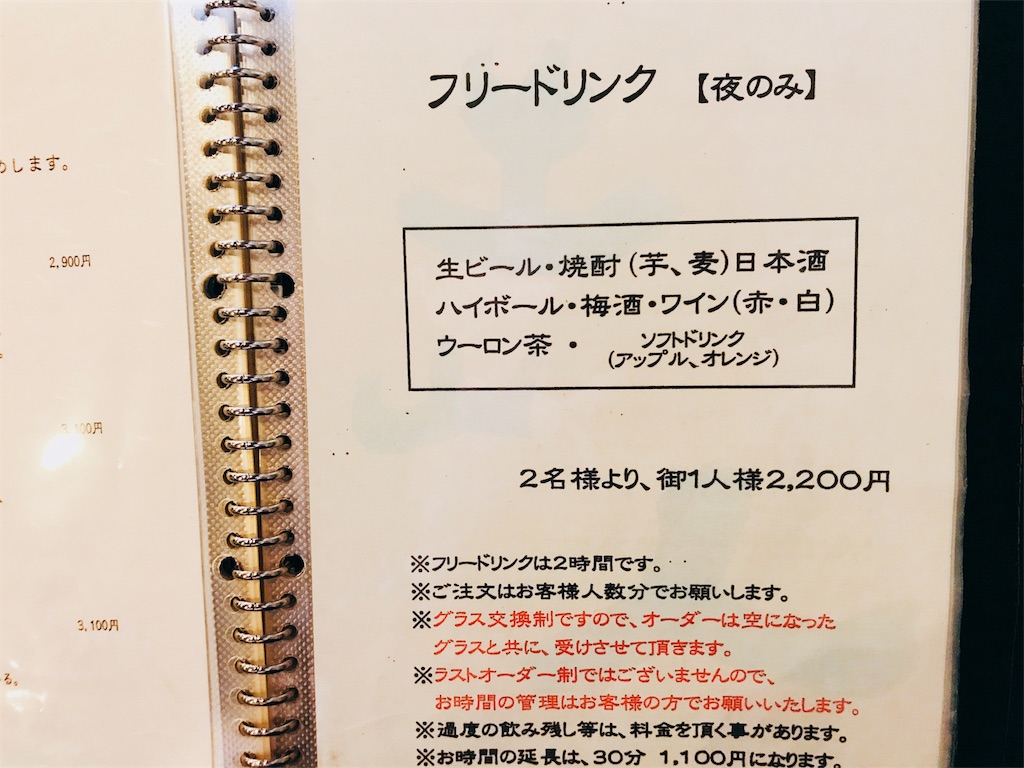 めします。
2,900円
3,100円
3,100円
る。
フリードリンク 【夜のみ】
生ビール・焼酎(芋、麦)日本酒
ハイボール・梅酒・ワイン(赤・白)
ウーロン茶 ・ ソフトドリンク
(アップル、オレンジ)
2名様より、御1人様2,200円
※フリードリンクは2時間です。
※ご注文はお客様人数分でお願いします。
※グラス交換制ですので、オーダーは空になった
グラスと共に、受けさせて頂きます。
※ラストオーダー制ではございませんので、
お時間の管理はお客様の方でお願いいたします。
※過度の飲み残し等は、料金を頂く事があります。
※お時間の延長は、30分 1,100円になります。